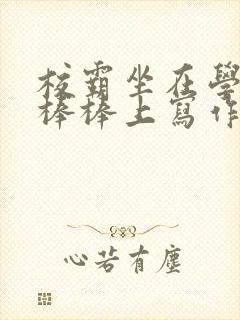 校霸坐在學
棒棒上寫作
心若有塵